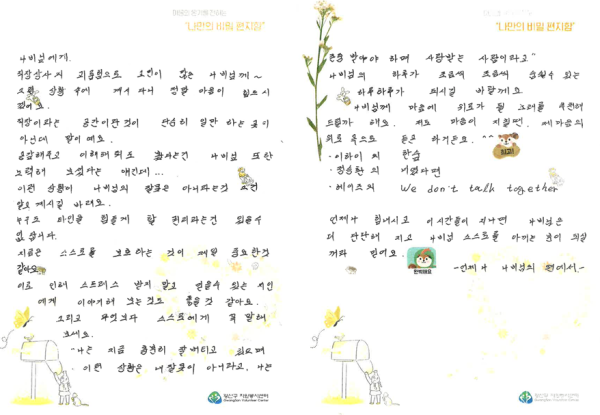 마음의 온기를 전하는
"나만의 비밀 편지함"
나비님에게.
직장상사의 괴롭힘으로 고민이 많은 나비님께~
그런 상황 속에 계속 계셔서 정말 마음이 힘드시
겠어요.
직장이라는 공간이란것이 단순히 일만 하는 곳이
아닌데 말이예요.
응답해주고 이해해줘도 참는다는건 나비님 또한
노력해 오셨다는 얘긴데...
이런 상황이 나비님의 잘못은 아니라는것 그건
알고 계시길 바래요.
누구도 타인을 힘들게 할 권리라는건 있을수
없습니다.
지금은 스스로를 보호하는 것이 제일 중요한것
같아요.
이로 인해 스트레스 받지 말고 믿을수 있는 지인
에게 이야기해 보는것도 좋을것 같아요.
그리고 무엇보다 스스로에게 꼭 말해
보세요.
"나는 지금 충분히 잘 버티고 있으며
이런 상황은 내 잘못이 아니라고, 나는
광산구 자원봉사센터
Gwangsan Volunteer Centre
"나만의 비밀 편지함"
존중 받아야 하며 사랑받는 사람이라고"
나비님의 하루가 조금씩 조금씩 숨쉴수 있는
하루하루가 되시길 바랄게요.
나비님께 마음에 위로가 될 노래를 추천해
드릴까 해요. 저도 마음이 지칠땐, 제 마음의
위로 목으로 듣곤 하거든요. ^^
최고!
- 이하이 의 한숨
- 정승환 의 너였다면
- 헤이즈의 We don't talk together
언제나 힘내시고 이 시간들이 지나면 나비님은
더 단단해 지고 나비님 스스로를 아끼는 분이 되실
꺼라 믿어요.
반해써요
- 언제나 나비님의 편에서 -
광산구 자원봉사센터
Gwangsan Volunteer Centre